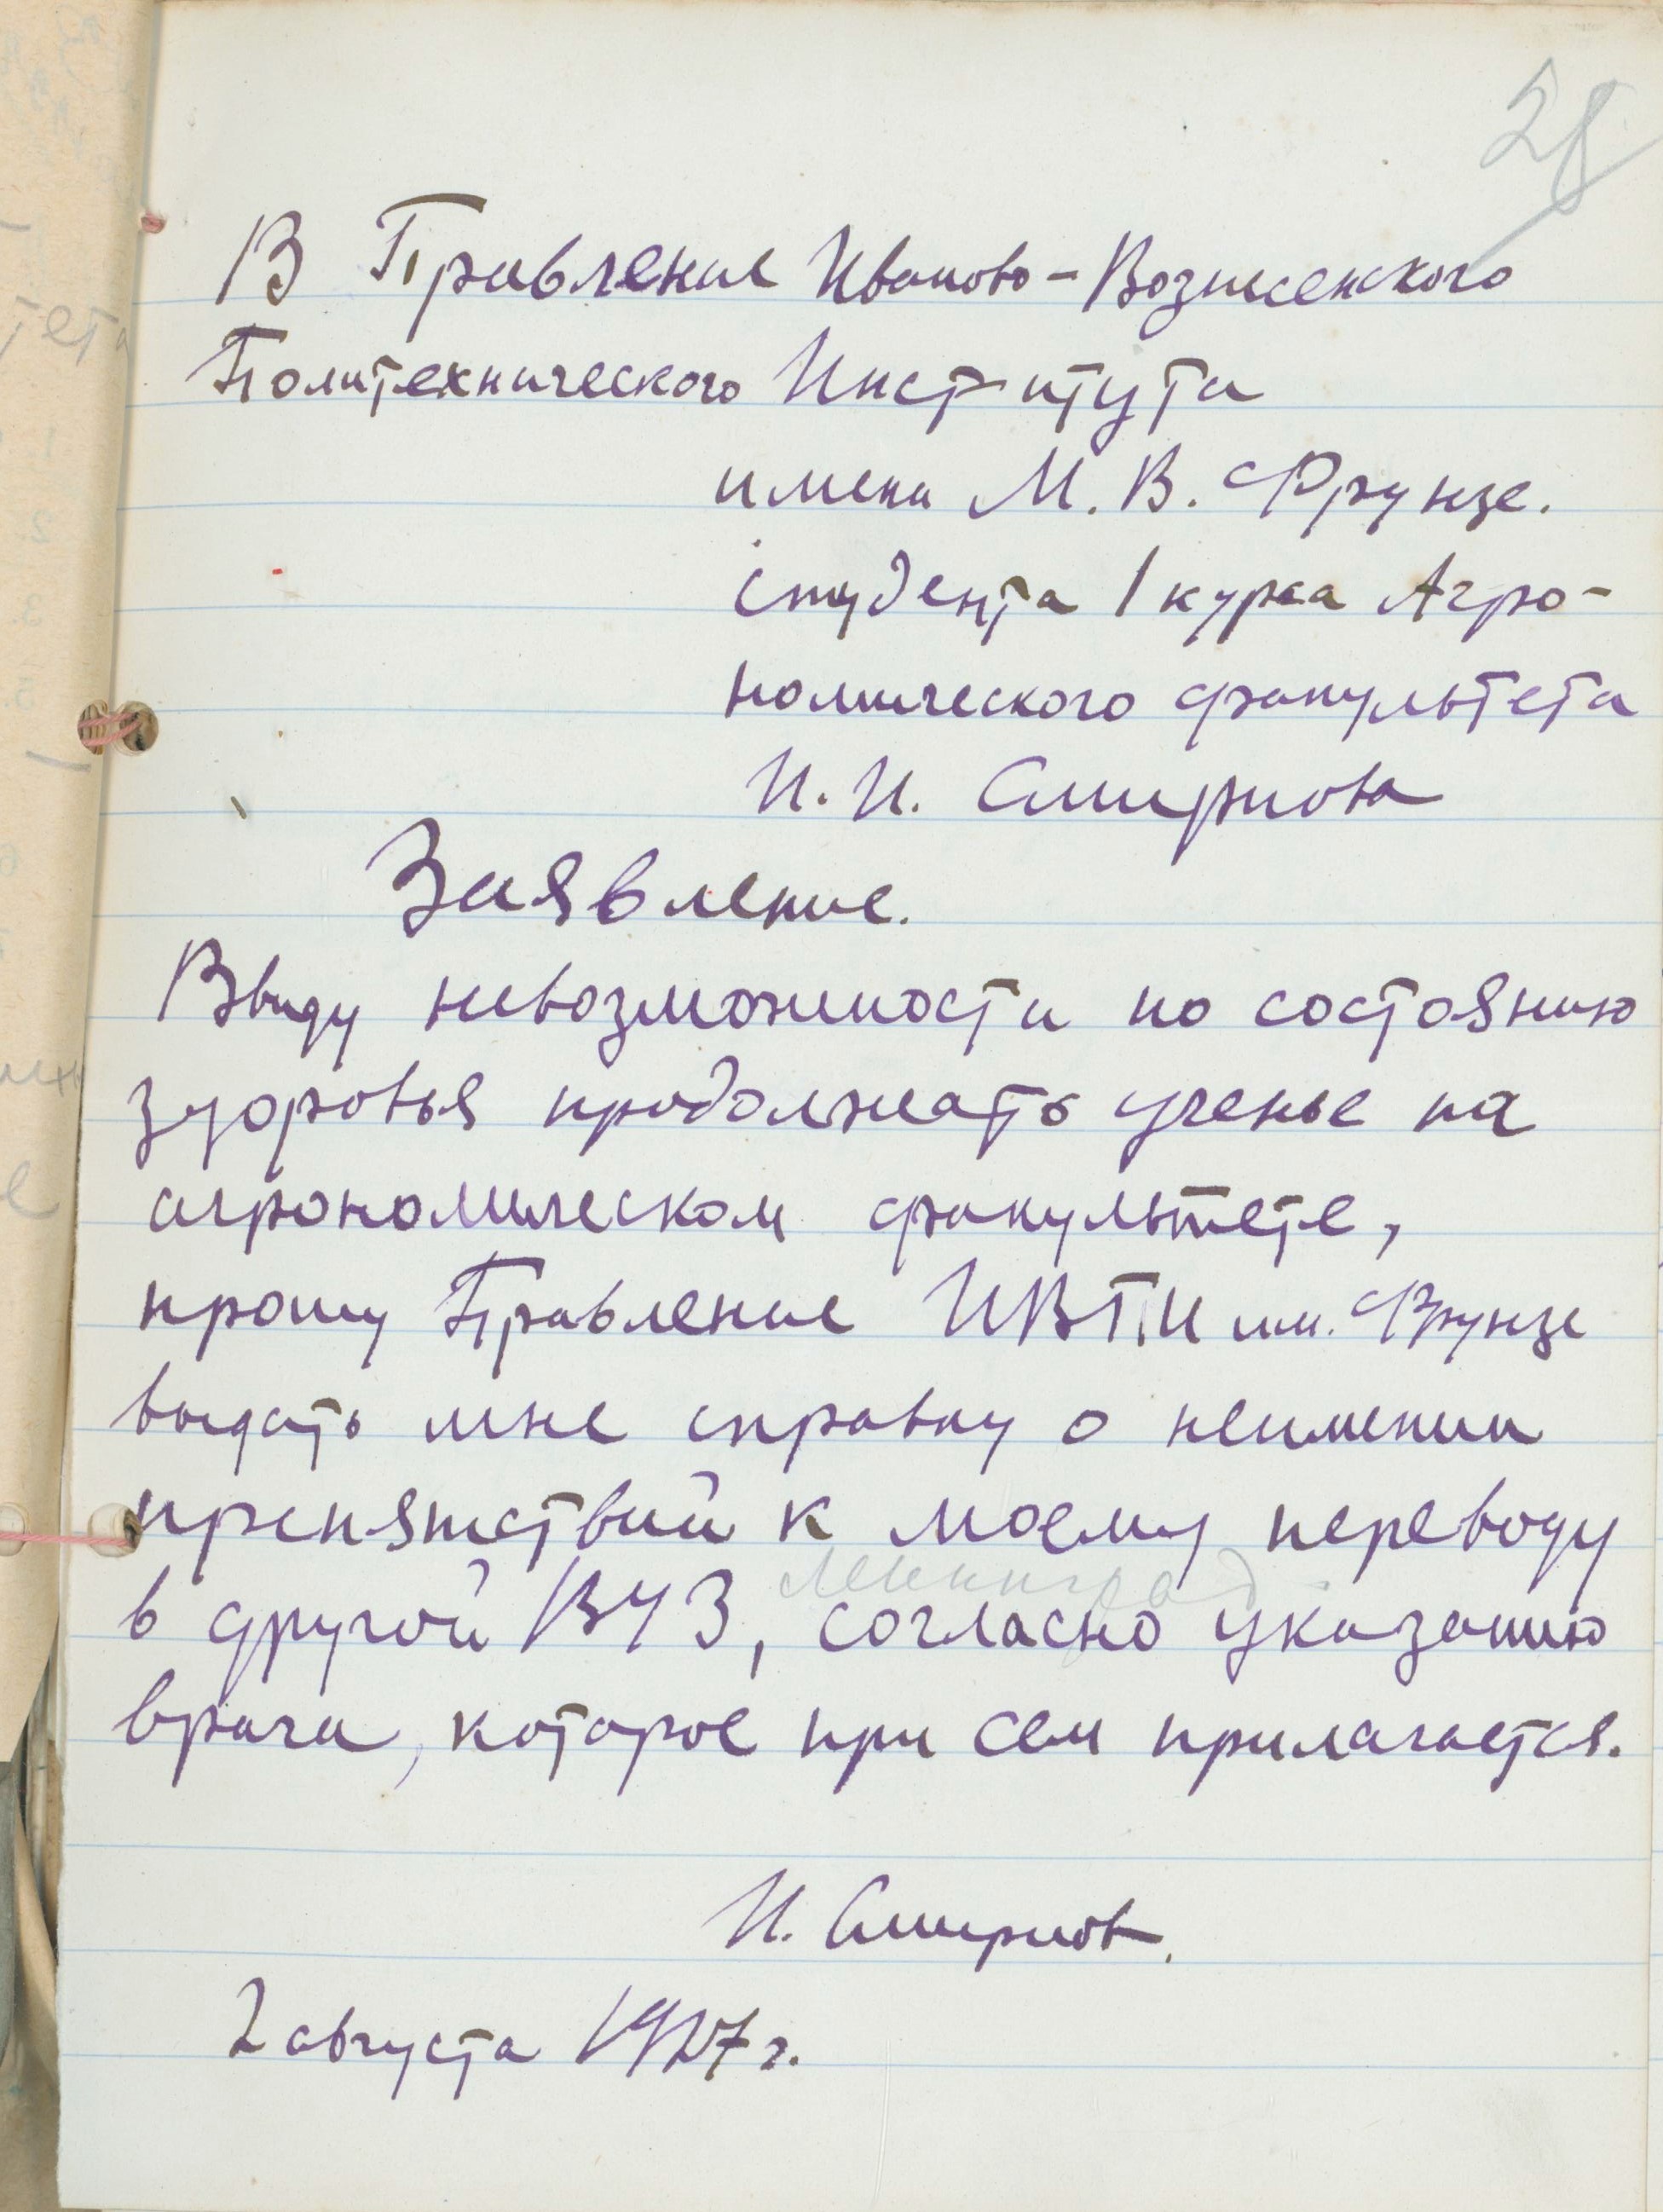 28
В Правление Иваново-Вознесенского
Политехнического Института
имени М. В. Фрунзе.
студента 1 курса Агро-
номического факультета
И. И. Смирнова
Заявление.
Ввиду невозможности по состоянию
здоровья продолжать ученье на
агрономическом факультете,
прошу Правление ИВПИ им. Фрунзе
выдать мне справку о неимении
препятствий к моему переводу
Ленинград
в другой ВУЗ, согласно указанию
врача, которое при сем прилагается.
И. Смирнов.
2 августа 1927 г.